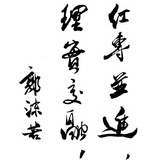 红专并进，
理實交融，
郭沫若